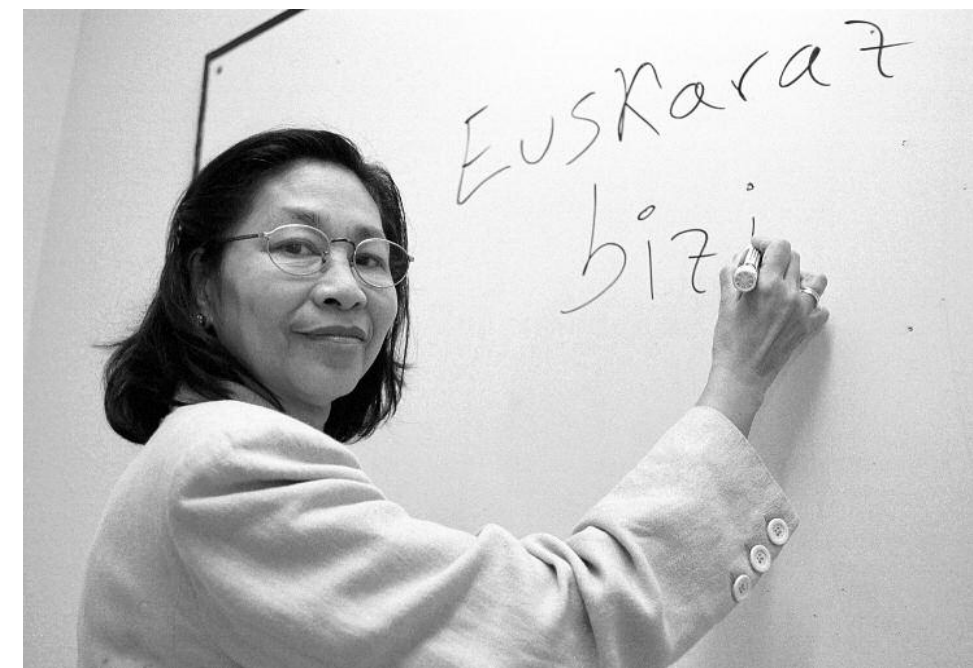 Euskaraz
bizi